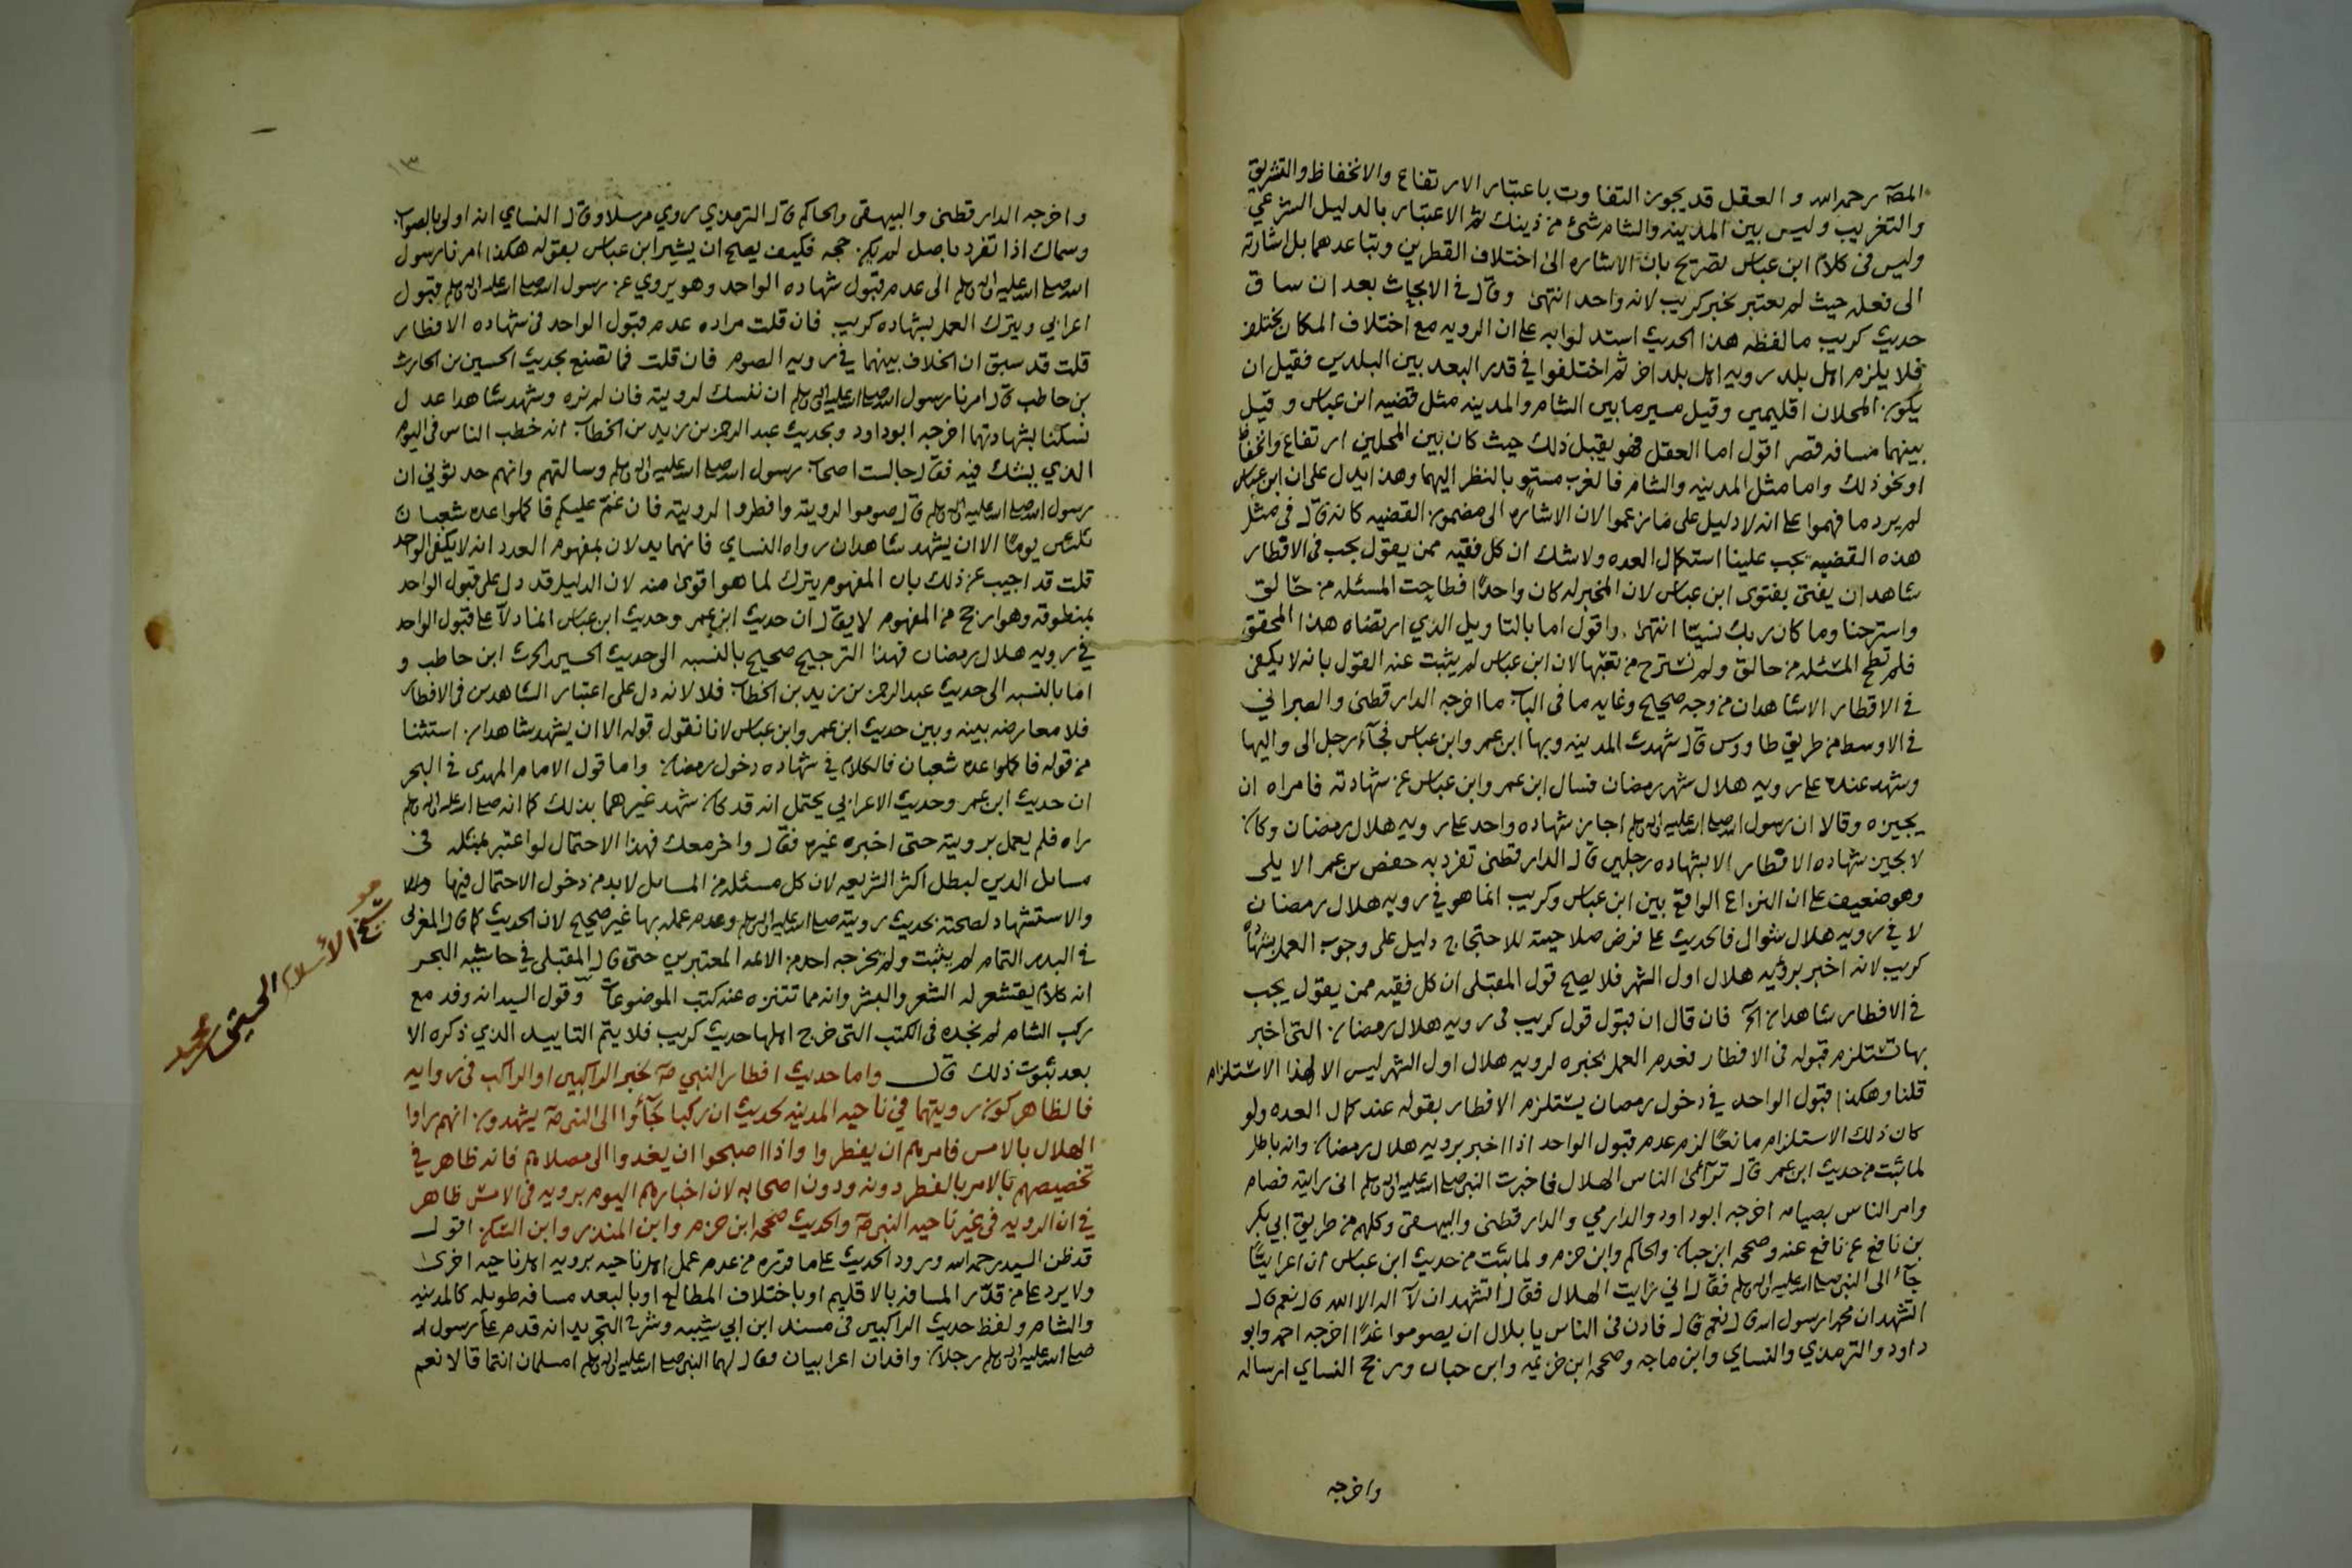 المصه رحمه الله والعقل قد يجوز التفاوت باعتبار الارتفاع والانخفاظ والتشريق
والتغريب وليس بين المدينه والشام شئ من ذينك ثم الاعتبار بالدليل الشرعي
وليس في كلام ابن عباس تصريح بان الاشاره الى اختلاف القطرين وتباعدهما بل اشارته
الى فعله حيث لم يعتبر بخبر كريب لانه واحد انتهى وقال في الابحاث بعد ان ساق
حديث كريب ما لفظه هذا الحديث استدلوا به على ان الرويه مع اختلاف المكان يختلف
فلا يلزم اهل بلد رويه اهل بلد اخر ثم اختلفوا في قدر البعد بين البلدين فقيل ان
يكون المحلان اقليمين وقيل مسير ما بين الشام والمدينه مثل قضيه ابن عباس وقيل
بينهما مسافه قصر اقول اما العقل فهو يقبل ذلك حيث كان بين المحلين ارتفاع وانخفاظ
او نحو ذلك واما مثل المدينه والشام فالغرب مستو بالنظر اليهما وهذا يدل على ان ابن عباس
لم يرد ما فهموا على انه لا دليل على ما زعموا لان الاشاره الى مضمون القضيه كانه قال في مثل
هذه القضيه يجب علينا استكمال العده ولا شك ان كل فقيه ممن يقول يجب في الافطار
شاهدان يفتي بفتوى ابن عباس لان المخبر له كان واحدًا فطاحت المسئله من حالق
واسترحنا وما كان ربك نسيّا انتهى واقول اما بالتاويل الذي ارتضاه هذا المحقق
فلم تطح المسئله من حالق ولم نسترح من تعبها لان ابن عباس لم يثبت عنه القول بانه لا يكفي
في الافطار الا شاهدان من وجه صحيح وغايه ما في الباب ما اخرجه الدارقطني والطبراني
في الاوسط من طريق طاووس قال شهدت المدينه وبها ابن عمر وابن عباس فجاء رجل الى واليها
وشهد عنده على رويه هلال شهر رمضان فسال ابن عمر وابن عباس عن شهادته فامراه ان
يجيزه وقالا ان رسول الله صلى الله عليه واله وسلم اجاز شهاده واحد على رويه هلال رمضان وكان
لا يجيز شهاده الافطار الا بشهاده رجلين قال الدارقطني تفرد به حفص بن عمر الايلي
وهو ضعيف على ان النزاع الواقع بين ابن عباس وكريب انما هو في رويه هلال رمضان
لا في رويه هلال شوال فالحديث على فرض صلاحيته للاحتجاج دليل على وجوب العمل بشهاده
كريب لانه اخبر برويه هلال اول الشهر فلا يصح قول المقبلي ان كل فقيه ممن يقول يجب
في الافطار شاهدان الخ فان قال ان قبول قول كريب في رويه هلال رمضان التي اخبر
بها تستلزم قبوله في الافطار فعدم العمل بخبره لرويه هلال اول الشهر ليس الا لهذا الاستلزام
قلنا وهكذا قبول الواحد في دخول رمضان يستلزم الافطار بقوله عند كمال العده ولو
كان ذلك الاستلزام مانعًا لزم عدم قبول الواحد اذا اخبر برويه هلال رمضان وانه باطل
لما ثبت من حديث ابن عمر قال ترآءى الناس الهلال فاخبرت النبي صلى الله عليه واله وسلم اني رايته فصام
وامر الناس بصيامه اخرجه ابو داود والدارمي والدارقطني والبيهقي وكلهم من طريق ابي بكر
بن نافع عن نافع عنه وصححه ابن حبان والحاكم وابن حزم ولما ثبت من حديث ابن عباس ان اعرابيًا
جآء الى النبي صلى الله عليه واله وسلم فقال اني رايت الهلال فقال اتشهد ان لا اله الا الله قال نعم قال
اتشهد ان محمدا رسول الله قال نعم قال فاذن في الناس يا بلال ان يصوموا غدًا اخرجه احمد وابو
داود والترمذي والنساي وابن ماجه وصححه ابن خزيمه وابن حبان ورجح النساي ارساله
واخرجه
١٣
واخرجه الدارقطني والبيهقي والحاكم قال الترمذي روي مرسلا وقال النساي انه اولى بالصواب
وسماك اذا تفرد باصل لم يكن حجه فكيف يصلح ان يشير ابن عباس بقوله هكذا امرنا رسول
الله صلى الله عليه واله وسلم الى عدم قبول شهاده الواحد وهو يروي عن رسول الله صلى الله عليه واله وسلم قبول
اعرابي ويترك العمل بشهاده كريب فان قلت مراده عدم قبول الواحد في شهاده الافطار
قلت قد سبق ان الخلاف بينهما في رويه الصوم فان قلت فما تصنع بحديث الحسين بن الحارث
بن حاطب قال امرنا رسول الله صلى الله عليه واله وسلم ان ننسك لرويته فان لم نره وشهد شاهدا عدل
نسكنا بشهادتهما اخرجه ابو داود وبحديث عبد الرحمن بن زيد بن الخطاب انه خطب الناس في اليوم
الذي يشك فيه فقال جالست اصحاب رسول الله صلى الله عليه واله وسلم وسالتهم وانهم حدثوني ان
رسول الله صلى الله عليه واله وسلم قال صوموا لرويته وافطروا لرويته فان غم عليكم فاكملوا عده شعبان
ثلثين يومًا الا ان يشهد شاهدان رواه النساي فانهما يدلان بمفهوم العدد انه لا يكفي الواحد
قلت قد اجيب عن ذلك بان المفهوم يترك لما هو اقوى منه لان الدليل قد دل على قبول الواحد
بمنطوقه وهو ارجح من المفهوم لا يقال ان حديث ابن عمر وحديث ابن عباس انما دلا على قبول الواحد
في رويه هلال رمضان فهذا الترجيح صحيح بالنسبه الى حديث الحسين بن الحرث ابن حاطب و
اما بالنسبه الى حديث عبد الرحمن بن زيد بن الخطاب فلا لانه دل على اعتبار الشاهدين في الافطار
فلا معارضه بينه وبين حديث ابن عمر وابن عباس لانا نقول قوله الا ان يشهد شاهدان استثنا
من قوله فاكملوا عده شعبان فالكلام في شهاده دخول رمضان واما قول الامام المهدي في البحر
ان حديث ابن عمر وحديث الاعرابي يحتمل انه قد كان شهد غيرهما بذلك كما انه صلى الله عليه واله وسلم
راه فلم يعمل برويته حتى اخبره غيره فقال واخر معك فهذا الاحتمال لو اعتبر بمثله في
مسائل الدين لبطل اكثر الشريعه لان كل مسئله من المسائل لابد من دخول الاحتمال فيها
والاستشهاد لصحته بحديث رويته صلى الله عليه واله وسلم وعدم عمله بها غير صحيح لان الحديث كما قال المغربي
في البدر التمام لم يثبت ولم يخرجه احد من الائمه المعتبرين حتى قال المقبلي في حاشيه البحر
انه كلام يقشعر له الشعر والبشر وانه مما تتنزه عنه كتب الموضوعات وقول السيد انه وفد مع
ركب الشام لم نجده في الكتب التي خرج اهلها حديث كريب فلا يتم التاييد الذي ذكره الا
بعد ثبوت ذلك قال واما حديث افطار النبي صه بخبر الراكبين او الراكب في روايه
فالظاهر كون رويتهما في ناحيه المدينه لحديث ان ركبا جآءوا الى النبي صه يشهدون انهم راوا
الهلال بالامس فامرهم ان يفطروا واذا اصبحوا ان يغدوا الى مصلاهم فانه ظاهر في
تخصيصهم بالامر بالفطر دونه ودون اصحابه لان اخبارهم اليوم برويه في الامس ظاهر
في ان الرويه في غير ناحيه النبي صه والحديث صححه ابن حزم وابن المنذر وابن السكن اقول
قد ظن السيد رحمه الله ورود الحديث على ما قرره من عدم عمل اهل ناحيه برويه اهل ناحيه اخرى
ولا يرد على من قدّر المسافه بالاقليم او باختلاف المطالع او بالبعد مسافه طويله كالمدينه
والشام ولفظ حديث الراكبين في مسند ابن ابي شيبه وشرح التجريد انه قدم على رسول الله
صلى الله عليه واله وسلم رجلان وافدان اعرابيان فقال لهما النبي صلى الله عليه واله وسلم امسلمان انتما قالا نعم
شيخ الاسلام